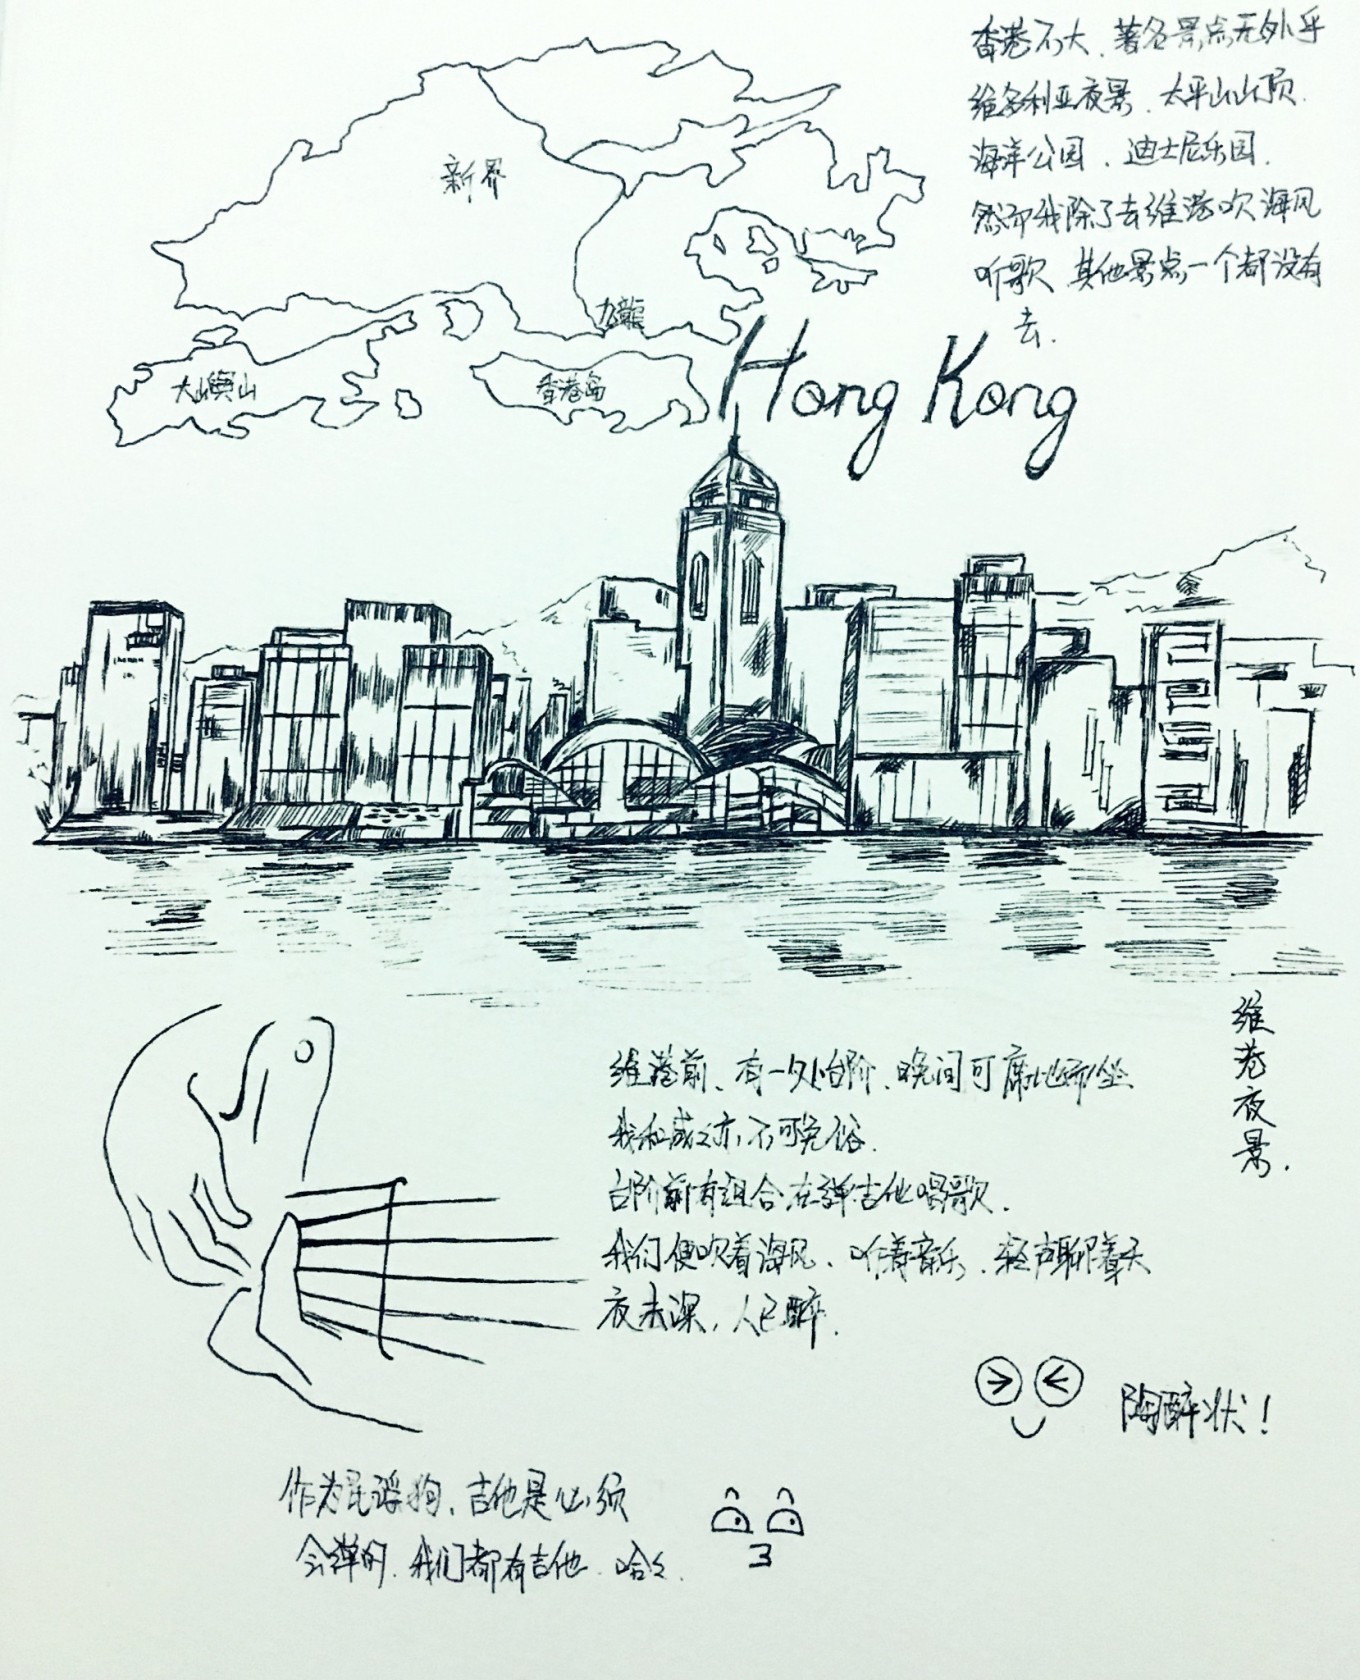 香港不大、著名景点无外乎
维多利亚夜景、太平山山顶、
海洋公园、迪士尼乐园.
然而我除了去维港吹海风
听歌、其他景点一个都没有
去.
新界
九龍
大嶼山
香港島
Hong Kong
维港夜景.
维港前、有一处台阶、晚间可席地而坐
我和戚之亦不可免俗.
台阶前有组合在弹吉他唱歌.
我们便吹着海风、听着音乐、轻声聊着天
夜未深,人已醉.
陶醉状!
作为民谣狗、吉他是必须
会弹的.我们都有吉他.哈哈.